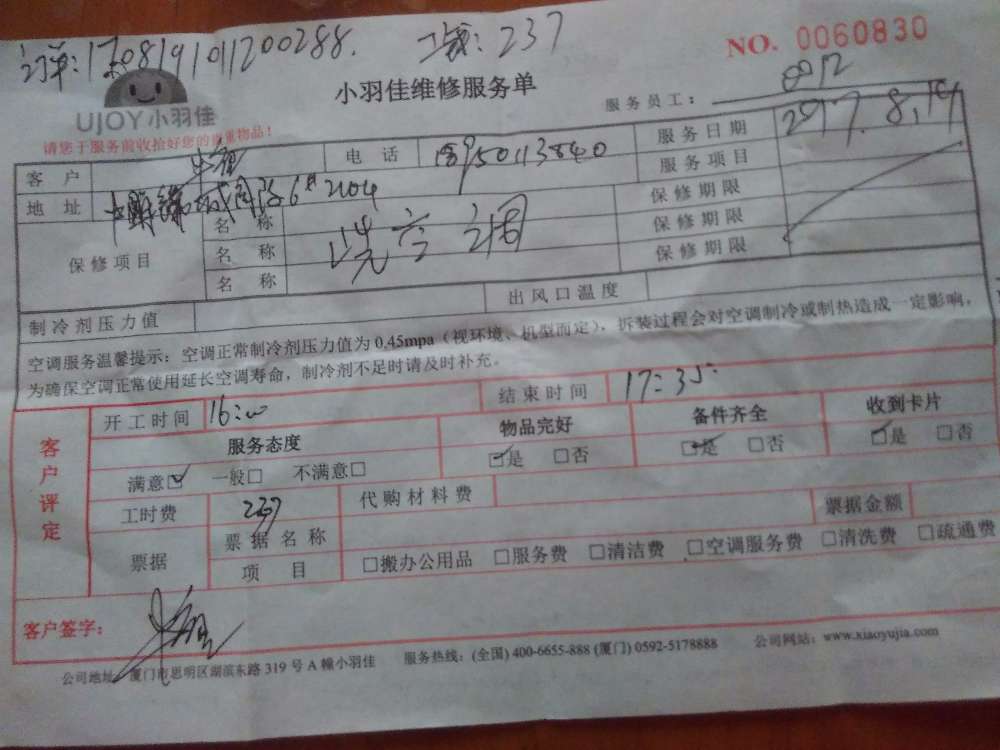 订单:1708191011200288. 237
NO. 0060830
UJOY小羽佳
小羽佳维修服务单
服务员工:
请您于服务前收拾好您的贵重物品!
客户 电话 服务日期 2017.8.19
地址 6 2104 服务项目
保修项目 名称 洗空调 保修期限
名称 保修期限
名称 保修期限
制冷剂压力值 出风口温度
空调服务温馨提示:空调正常制冷剂压力值为0.45mpa(视环境、机型而定),拆装过程会对空调制冷或制热造成一定影响,
为确保空调正常使用延长空调寿命,制冷剂不足时请及时补充。
客户评定
开工时间 16:00 结束时间 17:35
服务态度 物品完好 备件齐全 收到卡片
满意☑ 一般□ 不满意□ ☑是 □否 ☑是 □否 ☑是 □否
工时费 237 代购材料费
票据 票据名称 票据金额
项目 □搬办公用品 □服务费 □清洁费 □空调服务费 □清洗费 □疏通费
客户签字:
公司地址:厦门市思明区湖滨东路319号A幢小羽佳 服务热线:(全国)400-6655-888(厦门)0592-5178888 公司网站:www.xiaoyujia.com